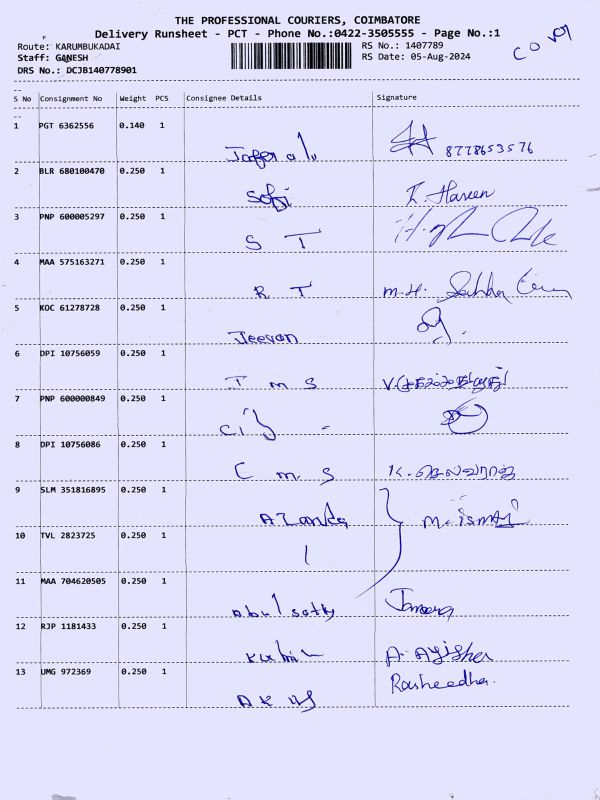 THE PROFESSIONAL COURIERS, COIMBATORE
Delivery Runsheet - PCT - Phone No.:0422-3505555 - Page No.:1
Route: KARUMBUKADAI RS No.: 1407789
Staff: GANESH RS Date: 05-Aug-2024
DRS No.: DCJB140778901
S No Consignment No Weight PCS Consignee Details Signature
1 PGT 6362556 0.140 1
8778653576
2 BLR 680100470 0.250 1
3 PNP 600005297 0.250 1
S T
4 MAA 575163271 0.250 1
R T M.H.
5 KOC 61278728 0.250 1
Jeevan
6 DPI 10756059 0.250 1
I M S
7 PNP 600000849 0.250 1
8 DPI 10756086 0.250 1
C M S K. செல்வராஜ்
9 SLM 351816895 0.250 1
M. ismail
10 TVL 2823725 0.250 1
11 MAA 704620505 0.250 1
12 RJP 1181433 0.250 1
A. Ayisha
13 UMG 972369 0.250 1
Rasheedha.